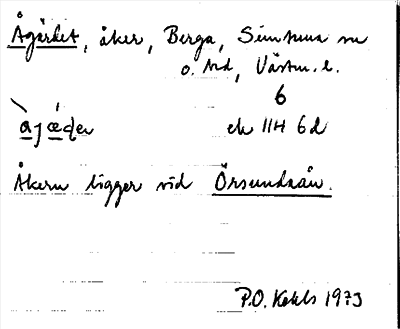 Ågärdet, åker, Berga, Simtuna sn
o. hd, Västm. l.
6
ek 11H 6d
Åkern ligger vid Örsundaån.
P.O. 1973